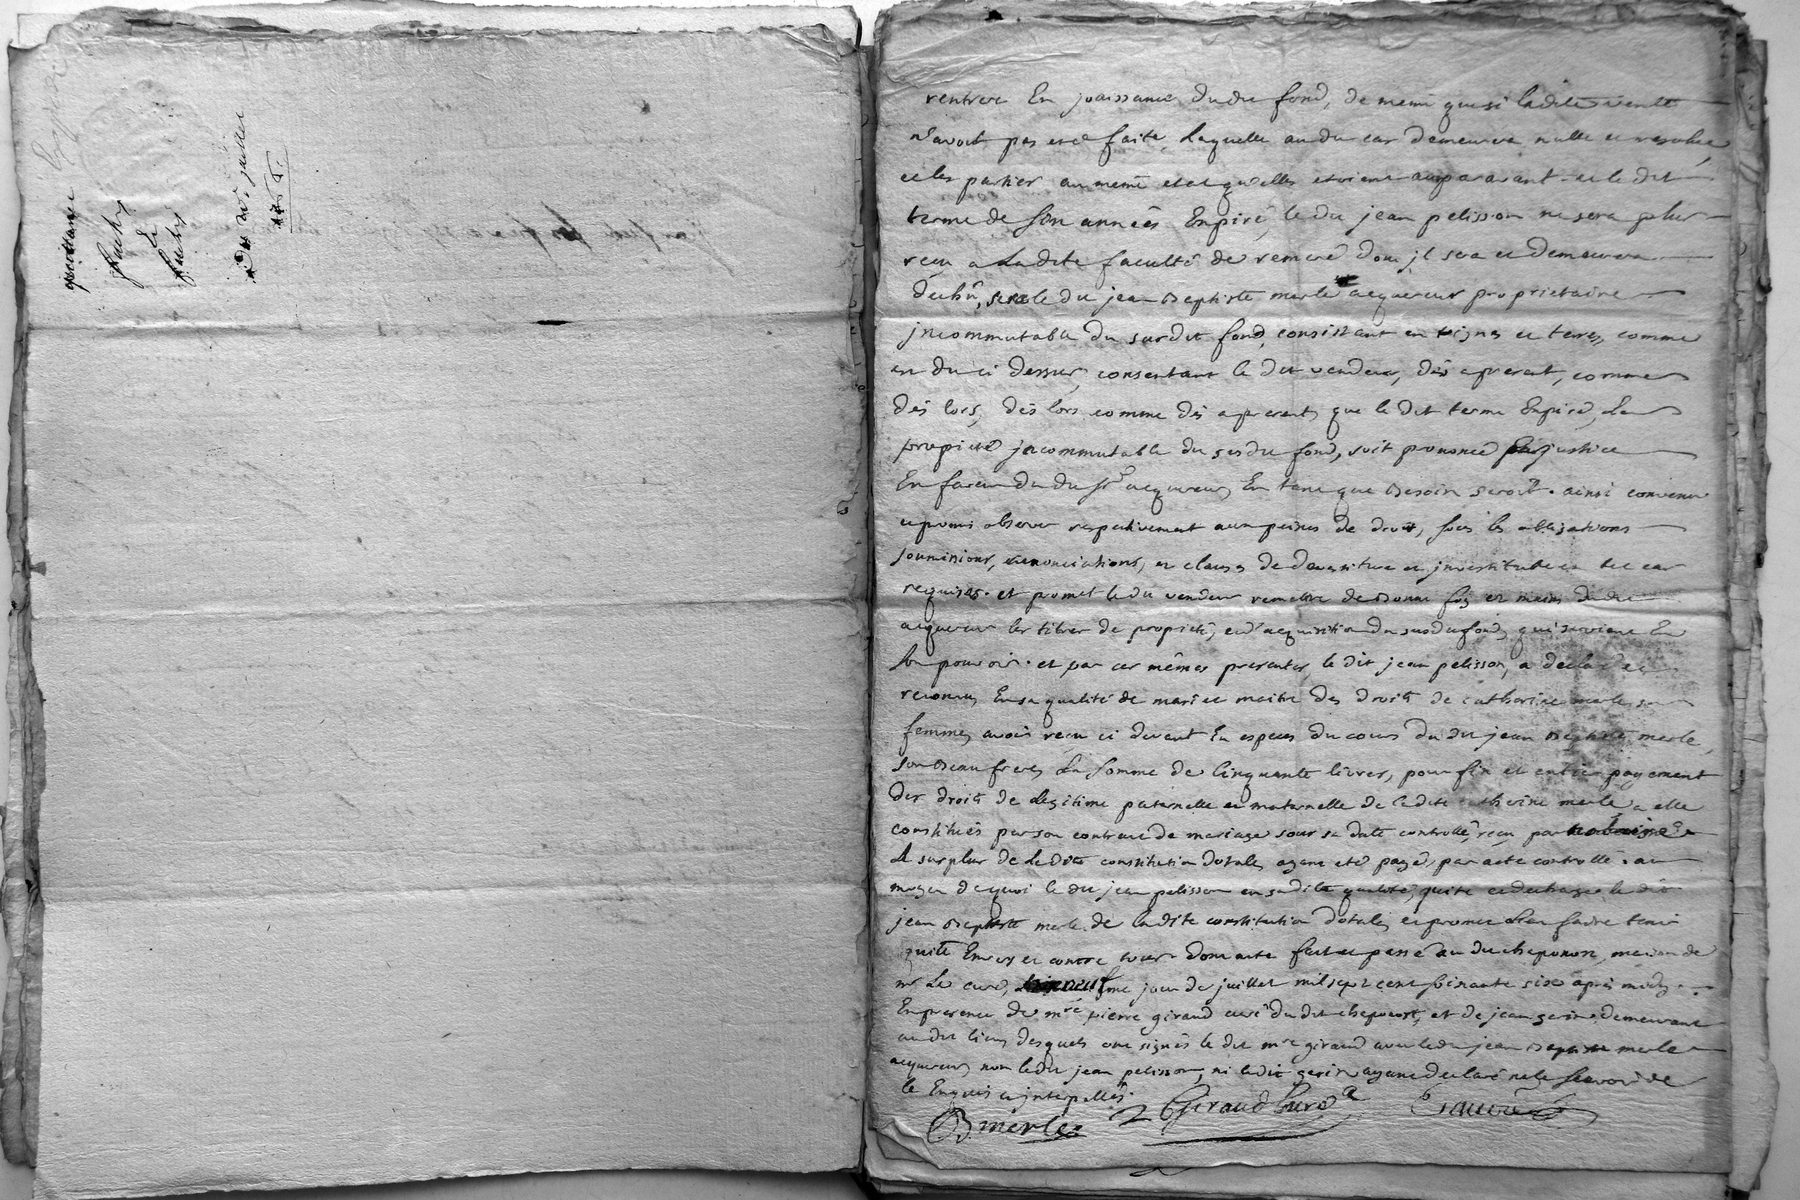 quittance
Du 20e juillet
rentrer En joüissance dudit fond, de meme que si ladite vente
n'avoit pas eté faite, Laquelle audit cas demeurera nulle et resoluë,
et les parties au meme etat qu'elles etoient auparavant. et le dit
terme de six années Expiré, le dit jean pelisson ne sera plus
reçu a Ladite faculté de remeré dont jl sera et demeurera
dechû, sera le dit jean Baptiste merle acquereur proprietaire
jncommutable du susdit fond, consistant en vignes et terres, comme
est dit ci dessus, consentant le dit vendeur, dès apresent, comme
dès lors, dès lors comme dès apresent, que le dit terme Expiré, La
proprieté jncommutable du susdit fond, soit prononcé par justice
En faveur du dit sr acquereur, En tant que Besoin seroit. ainsi convenu
et promi observer respectivement aux peines de droit, sous les obligations
soumissions, renonciations, et clauses de devestiture et jnvestiture en tel cas
requises. et promet le dit vendeur remettre de Bonne foy ez mains du dit
acquereur les titres de proprieté, et d'acquisition du susdit fond, qui seroient En
son pouvoir. et par ces mêmes presentes, le dit jean pelisson, a declaré et
reconnu, En sa qualité de mari et maitre des droits de catherine merle sa
femme, avoir reçu ci devant En especes du cours du dit jean Baptiste merle,
son Beau frere, La somme de Cinquante livres, pour fin et entier payement
des droits de Legitime paternelle et maternelle de ladite catherine merle a elle
constitués par son contract de mariage sous sa date controllé, reçu par
Le surplus de Ladite constitution dotale, ayant eté payé, par acte controllé. au
moyen de quoi le dit jean pelisson en sadite qualité, quite et decharge le dit
jean Baptiste merle de ladite constitution dotale, et promet L'en faire tenir
quitte Envers et contre tous. Dont acte fait et passé au dit cheponost, maison de
mr Le curé, me jour de juillet mil sept cent soixante six après midy.
En presence de mre pierre giraud curé du dit cheponost, et de jean gerin, demeurant
au dit lieu, desquels ont signés le dit mre giraud avec le dit jean Baptiste merle
acquereur, non le dit jean pelisson, ni le dit gerin, ayant declaré ne le sçavoir de
le Enquis et jnterpellés.
B merle
Giraud Curé